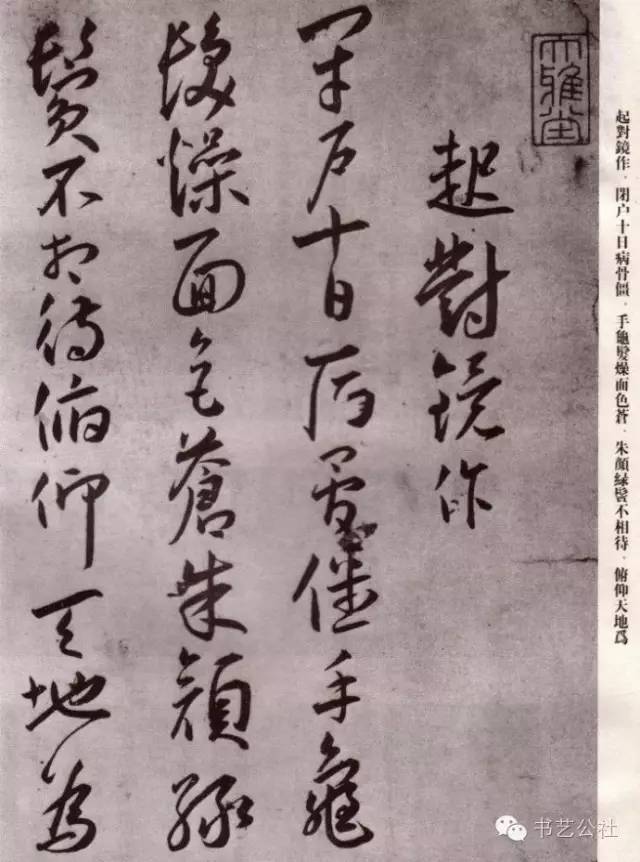 大雅堂
起對鏡作
閉户十日病骨僵手龜
髮燥面色蒼朱顏緑
鬢不相待俯仰天地為
起對鏡作。閉户十日病骨僵。手龜髮燥面色蒼。朱顏緑鬢不相待。俯仰天地爲
书艺公社